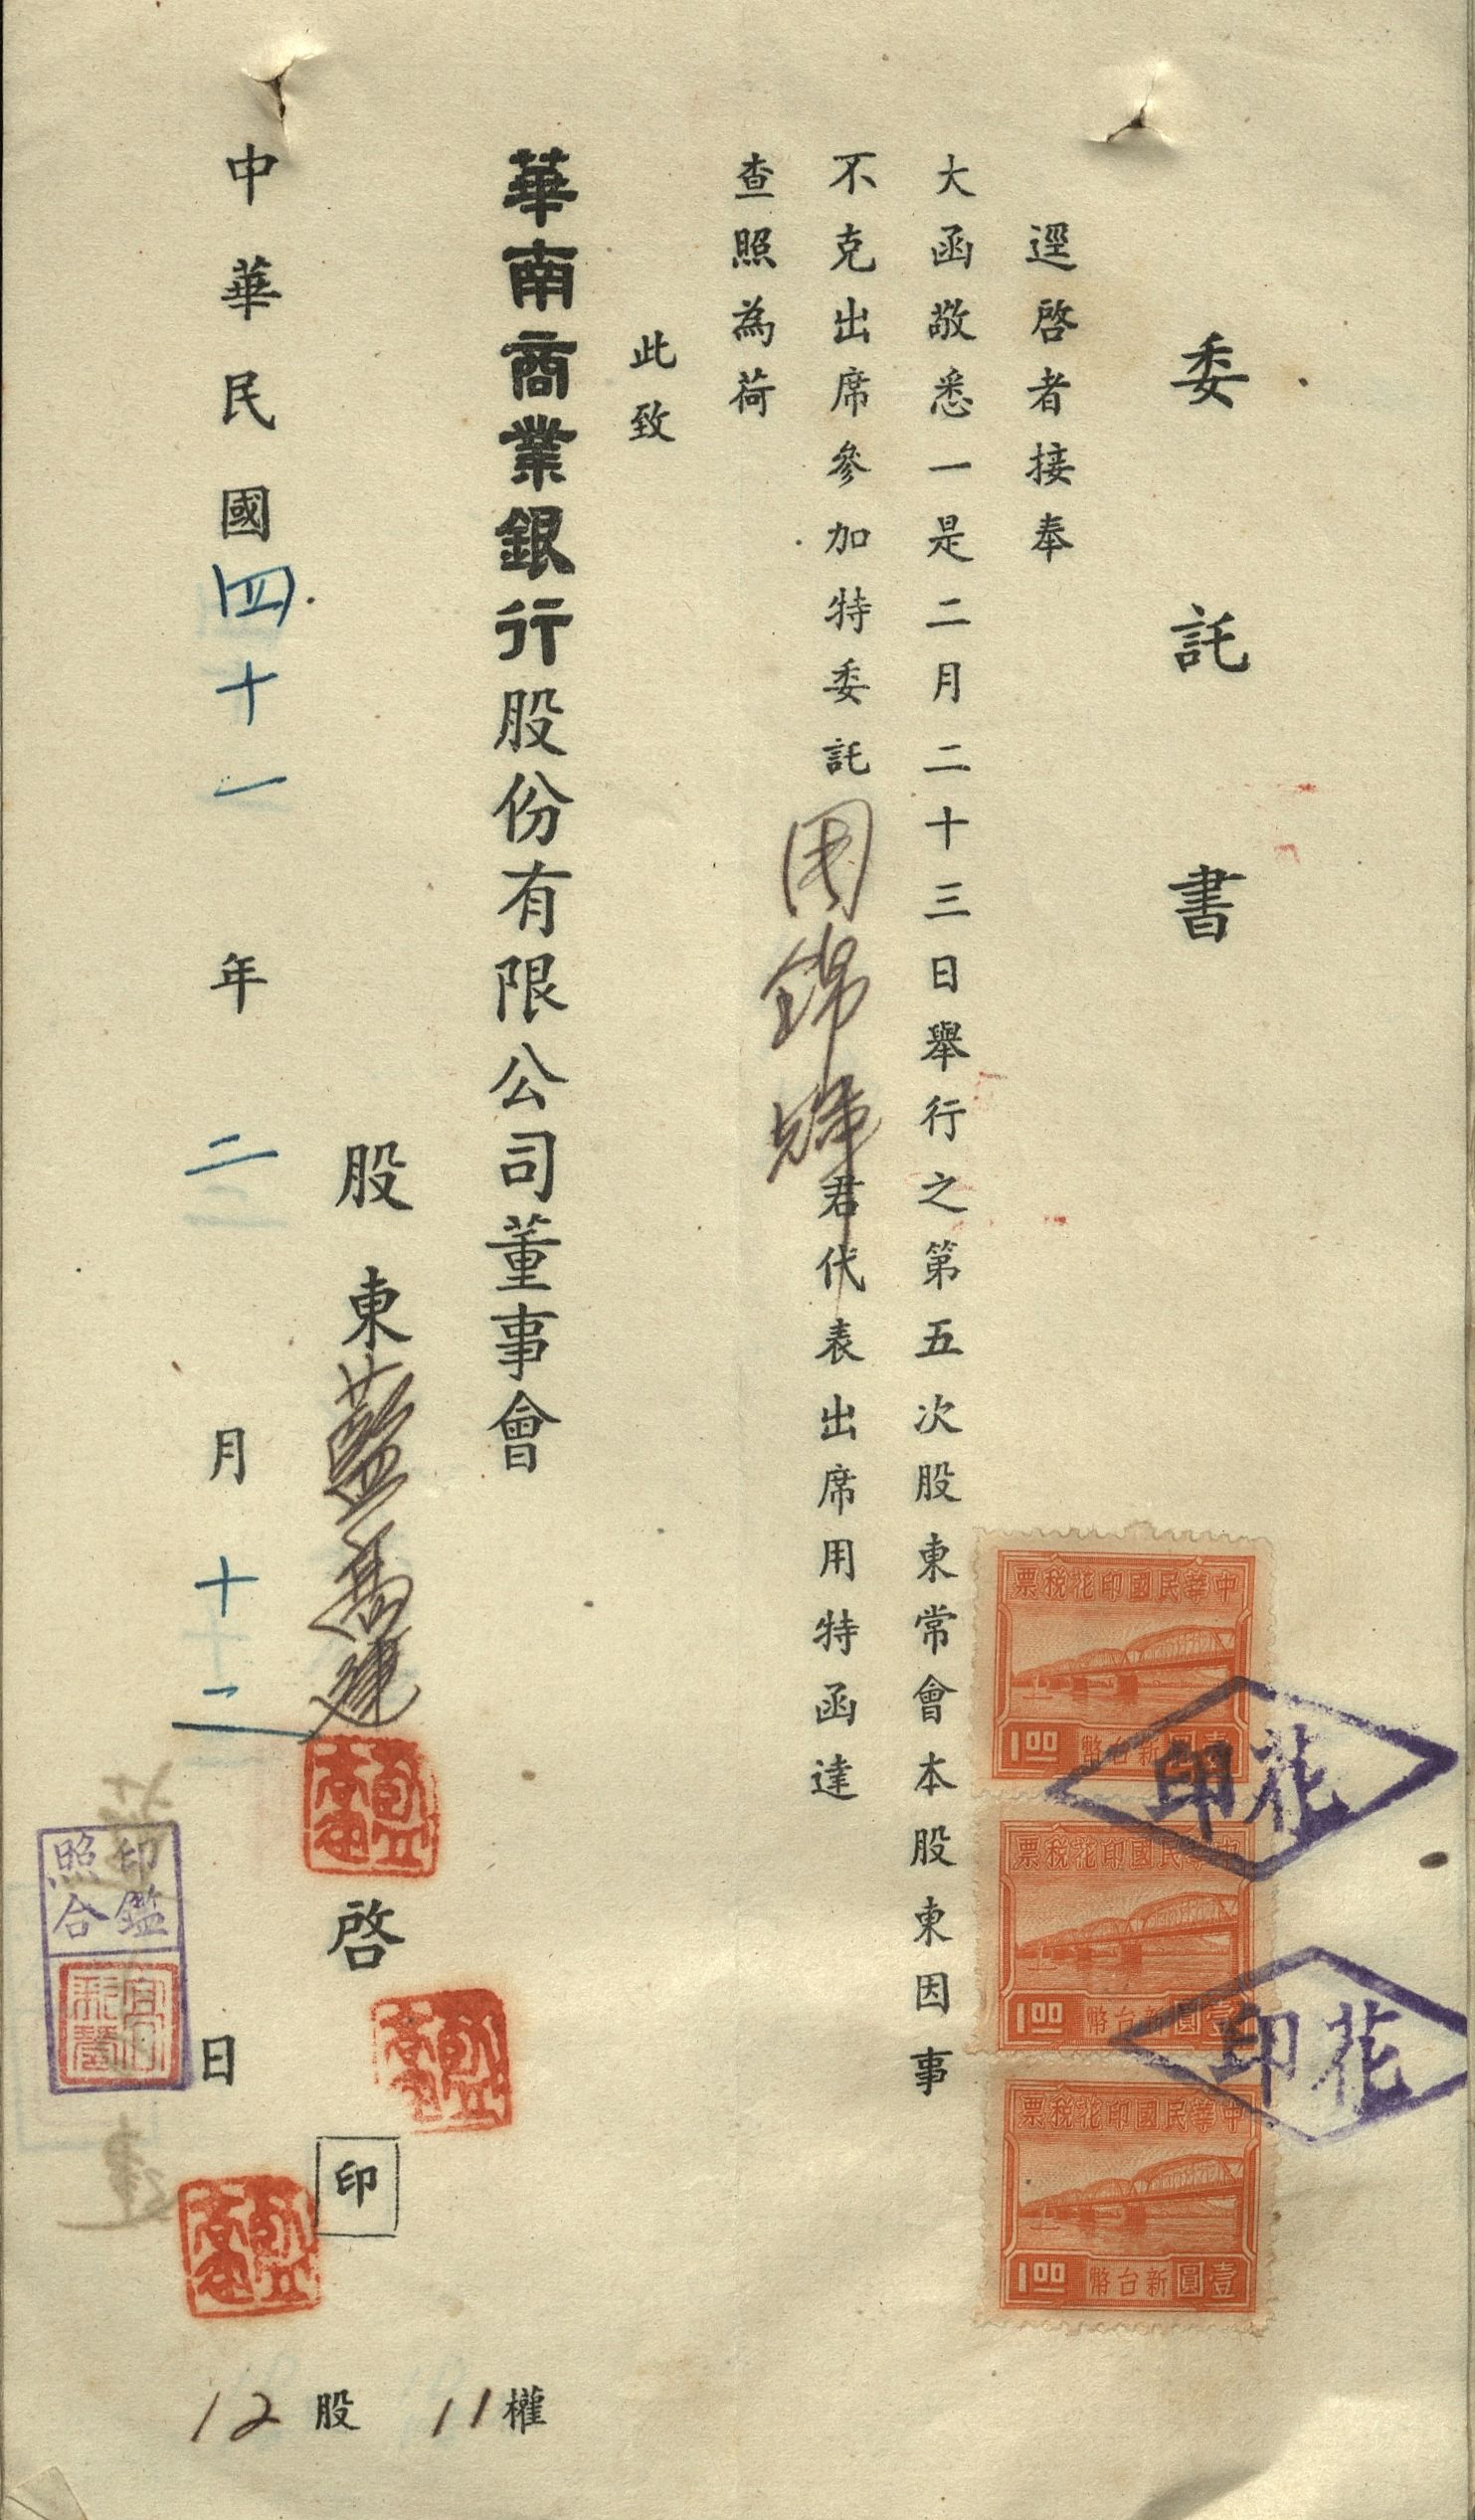 委託書
逕啓者接奉
大函敬悉一是二月二十三日舉行之第五次股東常會本股東因事
不克出席參加特委託周錦輝君代表出席用特函達
查照為荷
此致
華南商業銀行股份有限公司董事會
股東藍高連啓
印
中華民國四十一年二月十二日
12股 11權
印鑑
照合
中華民國印花稅票
壹圓新台幣
1.00
中華民國印花稅票
壹圓新台幣
1.00
中華民國印花稅票
壹圓新台幣
1.00
花印
花印